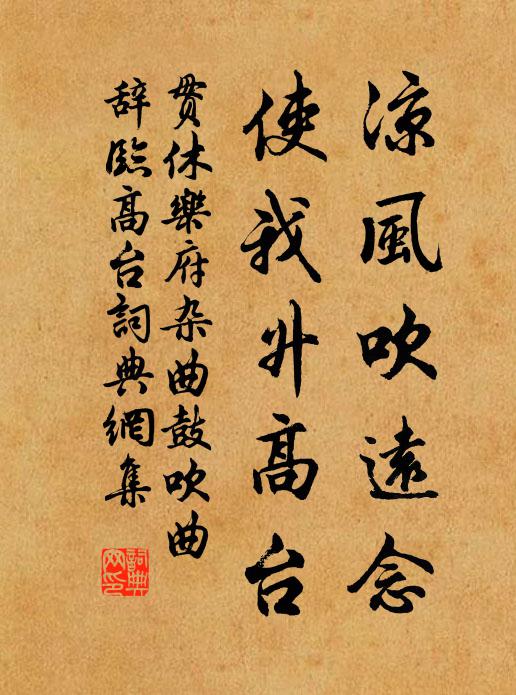 凉風吹遠念
使我升高台
貫休樂府杂曲鼓吹曲
辞臨高台詞典網集
詞典
网印